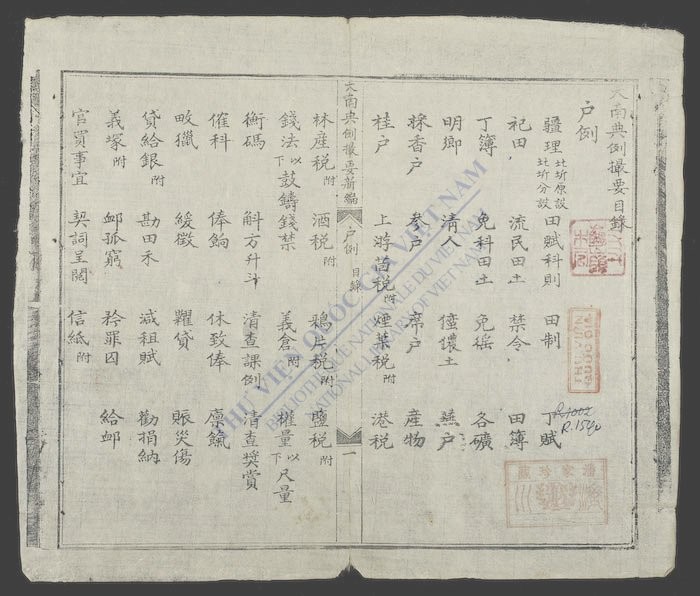 大南典例撮要目錄
户例
疆理 北圻原設 北圻分設 田賦科則 田制 丁賦
祀田 流民田土 禁令 田簿
丁簿 免科田土 免徭 各礦
明鄉 清人 儂土 燕户
採香户 參户 席户 產物
桂户 上游茴税附 煙葉税附 港税
大南典例撮要新編 户例 目錄 一
林産税附 酒税附 鴉片税附 鹽税附
錢法 以下 鼓鑄錢禁 義倉附 權量 以下 尺量
衡碼 斛方升斗 清查課例 清查獎賞
催科 俸餉 休致俸 廪餼
畋獵 緩徵 糶貸 賑災傷
貸給銀附 勘田禾 減租賦 勸捐納
義塚附 卹孤窮 矜罪囚 給卹
官買事宜 契詞呈閱 信紙附
THƯ VIỆN QUỐC GIA VIỆT NAM
BIBLIOTHÈQUE NATIONALE DU VIETNAM
NATIONAL LIBRARY OF VIETNAM
THƯ VIỆN
QUỐC GIA
R.1540